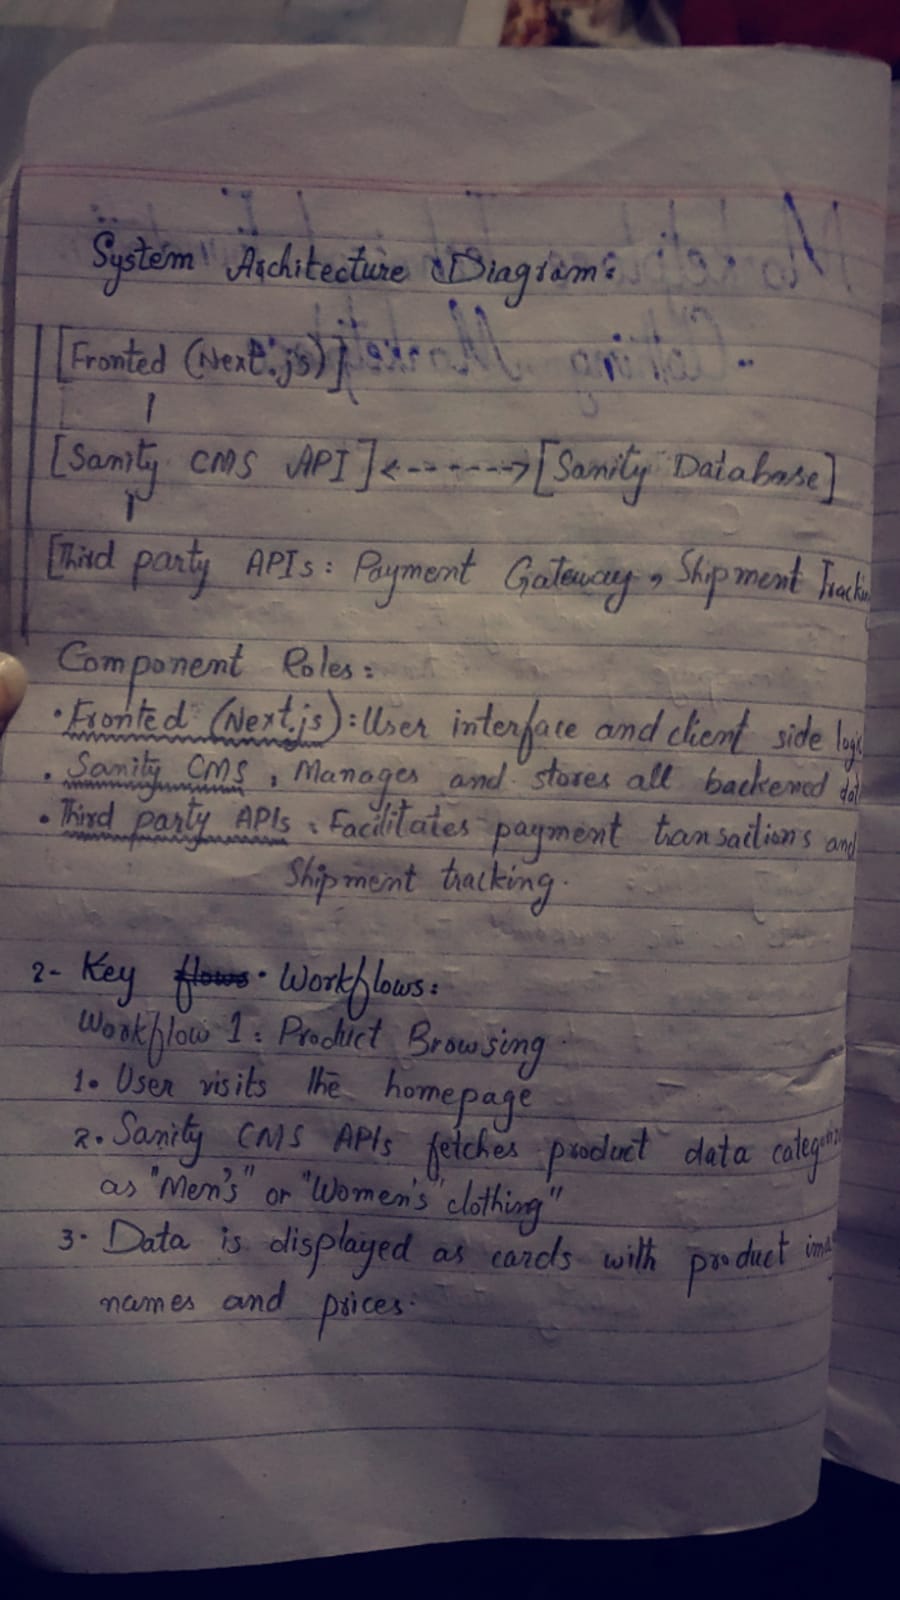 System Architecture Diagram:
[Fronted (Next.js)]
[Sanity CMS API] <------> [Sanity Database]
[Third party APIs: Payment Gateway, Shipment Trackin
Component Roles:
• Fronted (Next.js): User interface and client side logic
• Sanity CMS: Manages and stores all backened dat
• Third party APIs: Facilitates payment transactions and
Shipment tracking.
2- Key flows. Workflows:
Workflow 1: Product Browsing
1. User visits the homepage
2. Sanity CMS APIs fetches product data
as "Men's" or "Women's clothing"
3. Data is displayed as cards with product ima
names and prices.